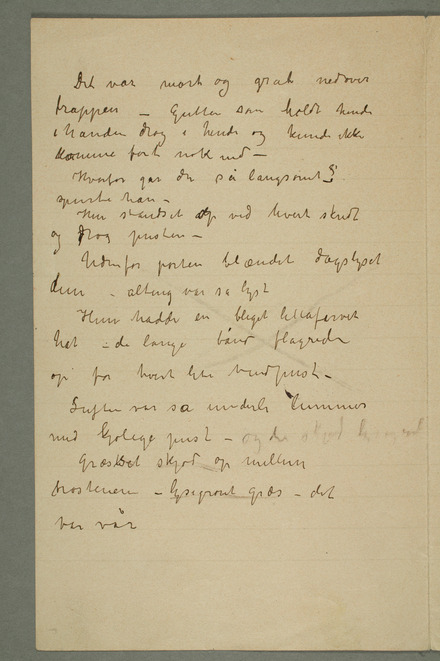 Det var mørk og gråt nedover
trappen – Gutten som holdt hende
i hånden drog i hende og kunde ikke
komme fort nok ned –
Hvorfor går du så langsomt?
spurte han –
Hun standset op ved hvert skridt
og drog pusten –
Udenfor porten blændet dagslyset
dem – alting var så lyst
Hun hadde en bleget lillafarvet
hat – de lange bånd flagrede
op for hvert lite vindpust –
Luften var så underli lummer
med kjølige pust – og der skjød
Græsset skjød op mellem
brostenene – lysegrønt græs – det
var vår